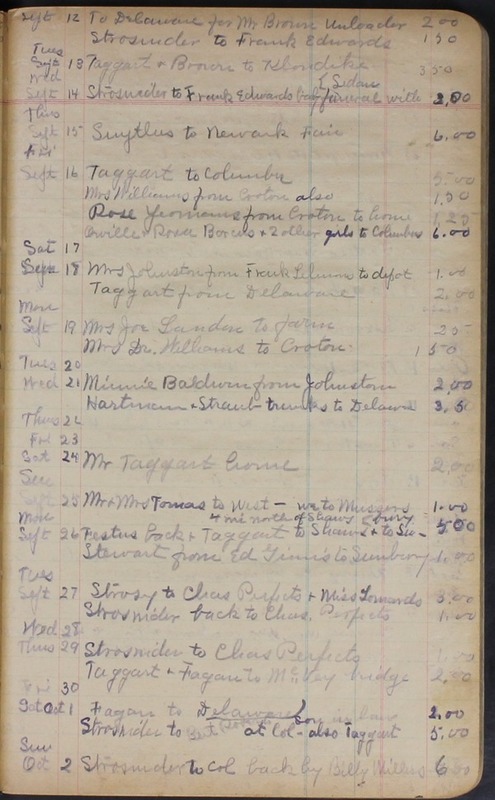 Sept 12 To Delaware for Mr Brown Unloader 2 00
Strosnider to Frank Edwards 1 50
Tues
Sept 13 Taggart & Brown to Klondike 3 50
Wed
Sept 14 Strosnider to Frank Edwards funeral with Sedan 2,50
Thus
Sept 15 to Newark Fair 6.00
Fri
Sept 16 Taggart to Columbu 5.00
Mrs Williams from Croton also 1,50
Rose Yeomans from Croton to home 1,25
Orville & Rosa + 2 other girls to Columbus 6.00
Sat 17
Sept 18 Mrs Johnston from Frank to depot 1.00
Taggart from Delaware 2,00
Mon
Sept 19 Mrs Joe Landon to farm 25
Mrs Dr. Williams to Croton 1 50
Tues 20
Wed 21 Minnie Baldwin from Johnstown 2,00
Hartman & Straub trunks to Delawa 3.50
Thus 22
Fri 23
Sat 24 Mr Taggart home 2,00
Sept 25 Mr + Mrs Tomas to West - to Mussers 1.00
4 mi north of Shaws
Mon
Sept 26 Festus back + Taggart to Shaws + to Sun- 5 00
bury
Stewart from Ed to Sunbury 1,00
Tues
Sept 27 Strosy to Chas Perfects + Miss 3,00
Strosnider back to Chas. Perfects 1.00
Wed 28
Thus 29 Strosnider to Chas Perfects
Taggart + Fagan to McVey bridge 2,00
Fri 30
Sat Oct 1 Fagan to Delaware 2.00
Strosnider to at Col - also Taggart 5.00
Sun
Oct 2 Strosnider to Col back by Billy 6